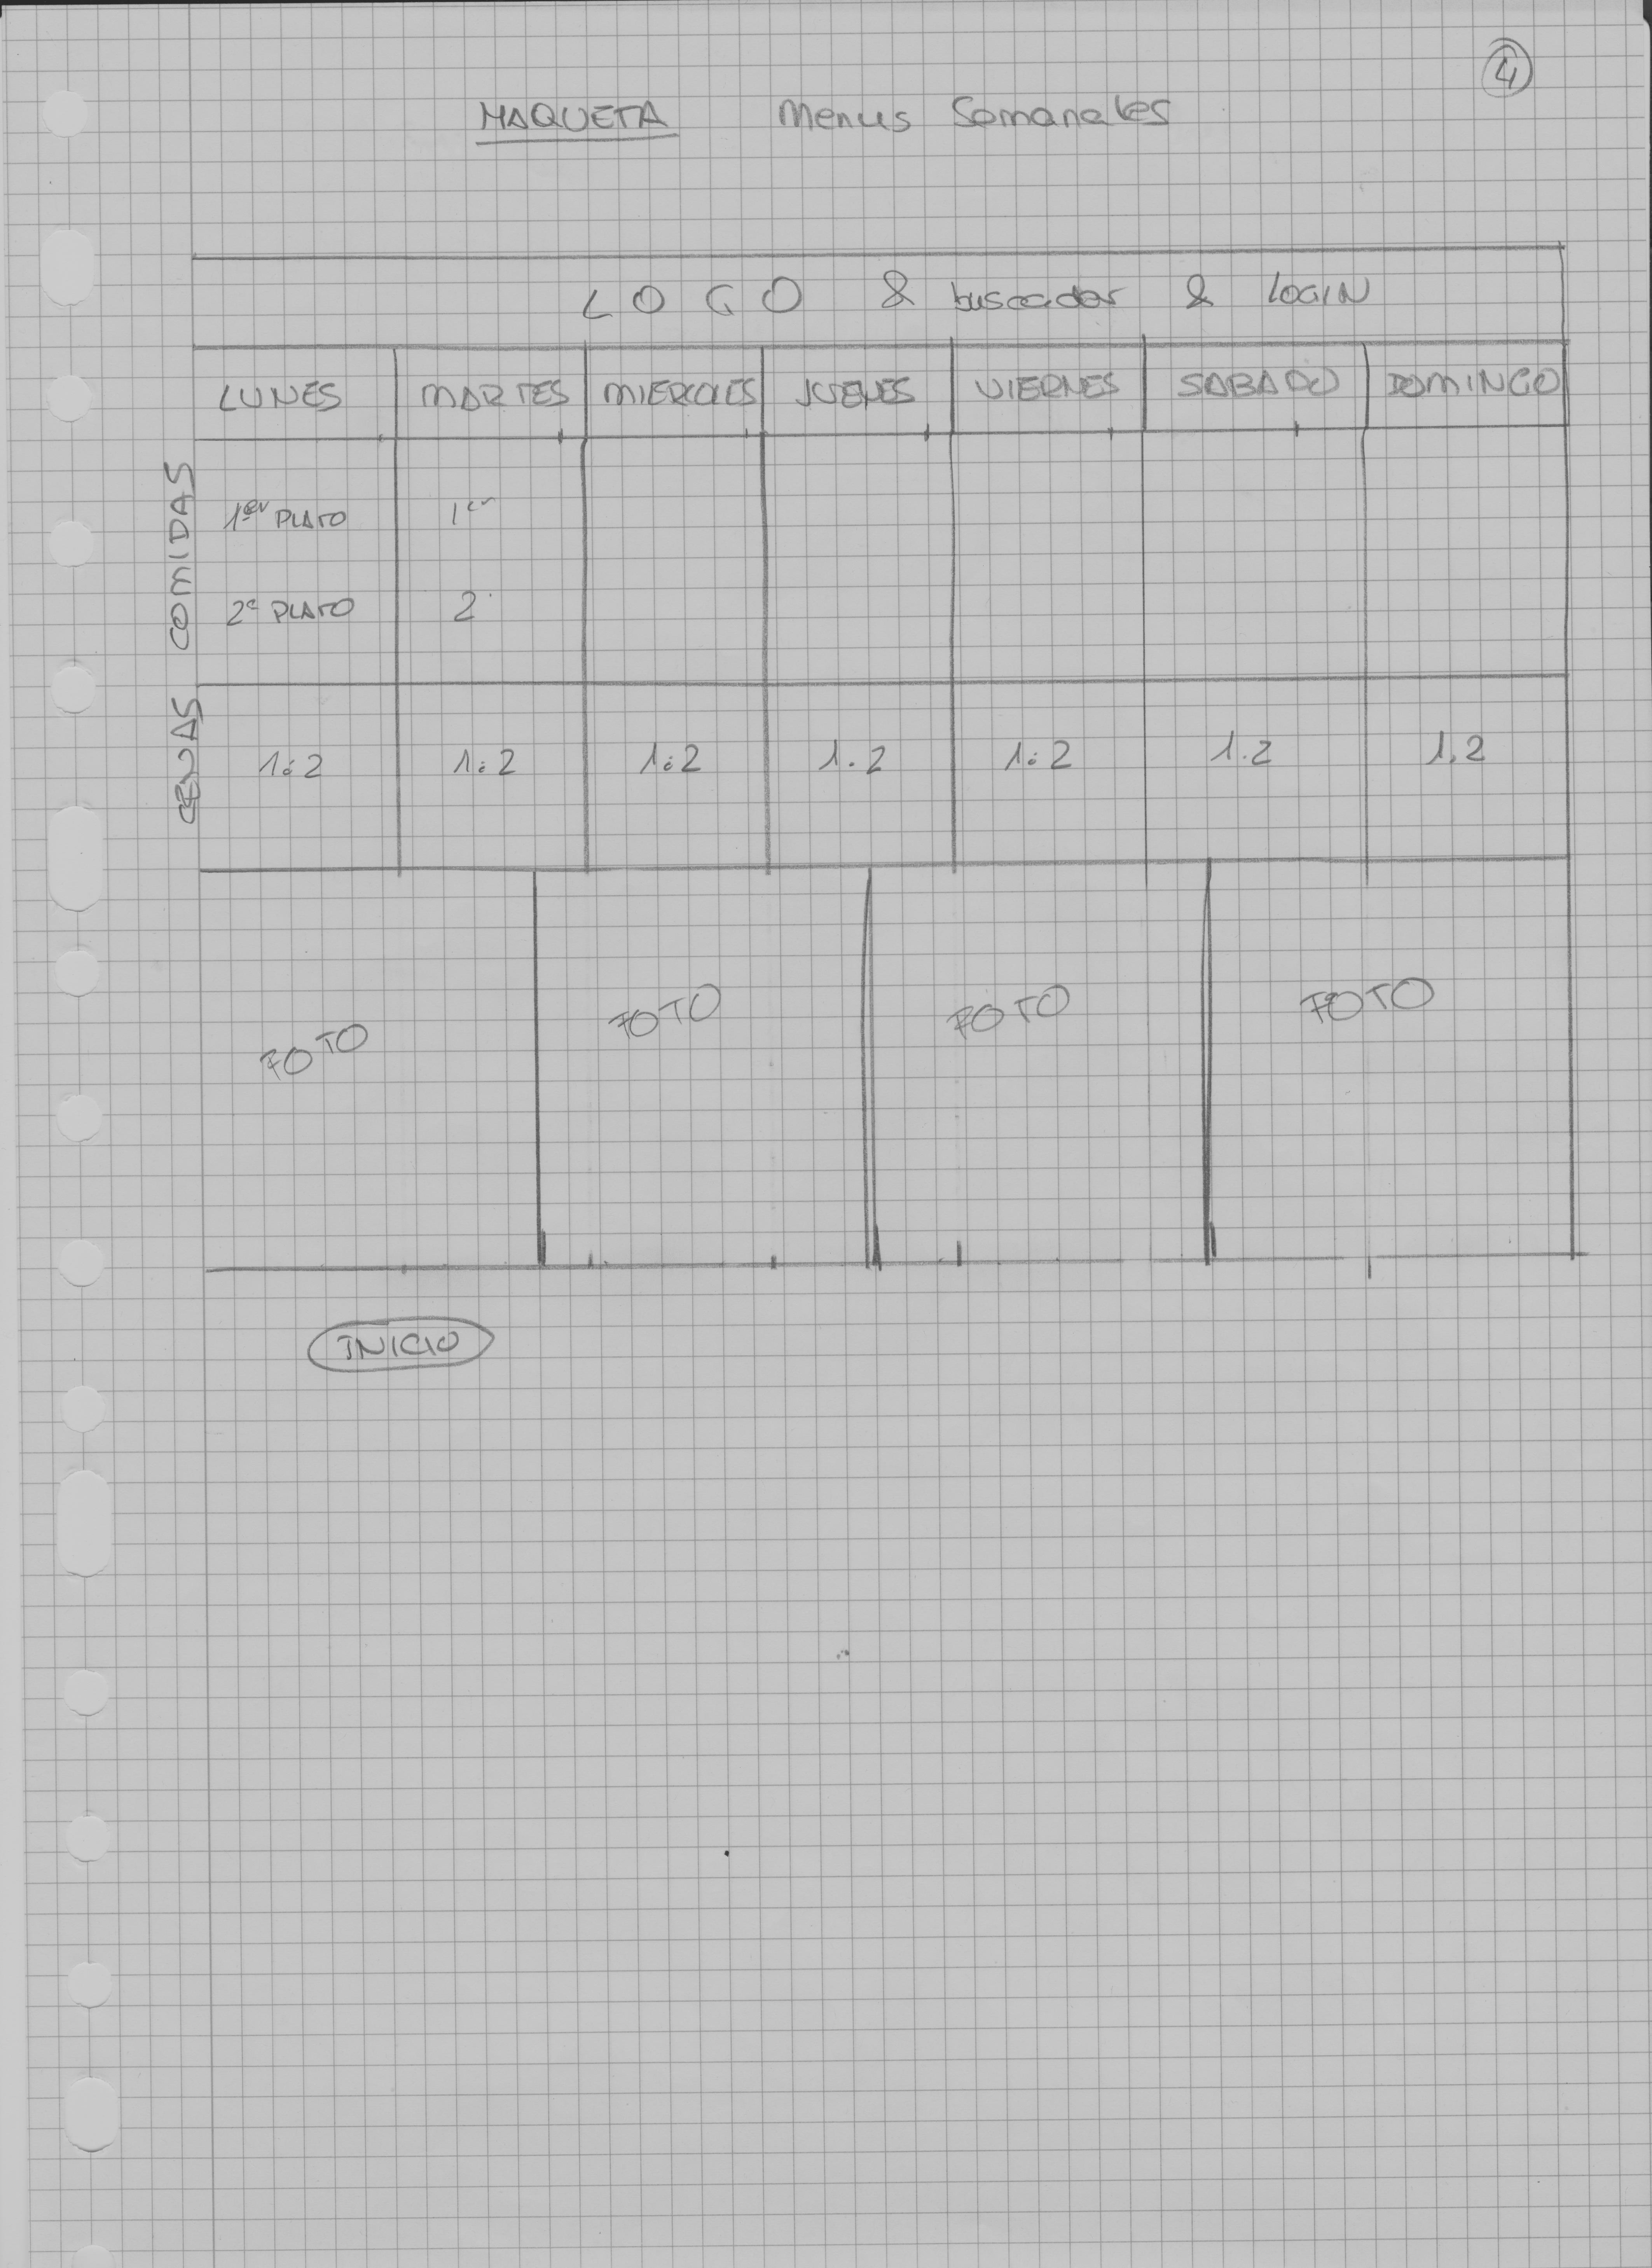 4
MAQUETA Menus Semanales
LOGO & buscador & LOGIN
LUNES MARTES MIERCOLES JUEVES VIERNES SABADO DOMINGO
COMIDAS
1er PLATO 1er
2º PLATO 2º
CENAS
1 ó 2 1 ó 2 1 ó 2 1 . 2 1 ó 2 1 . 2 1 . 2
FOTO FOTO FOTO FOTO
INICIO